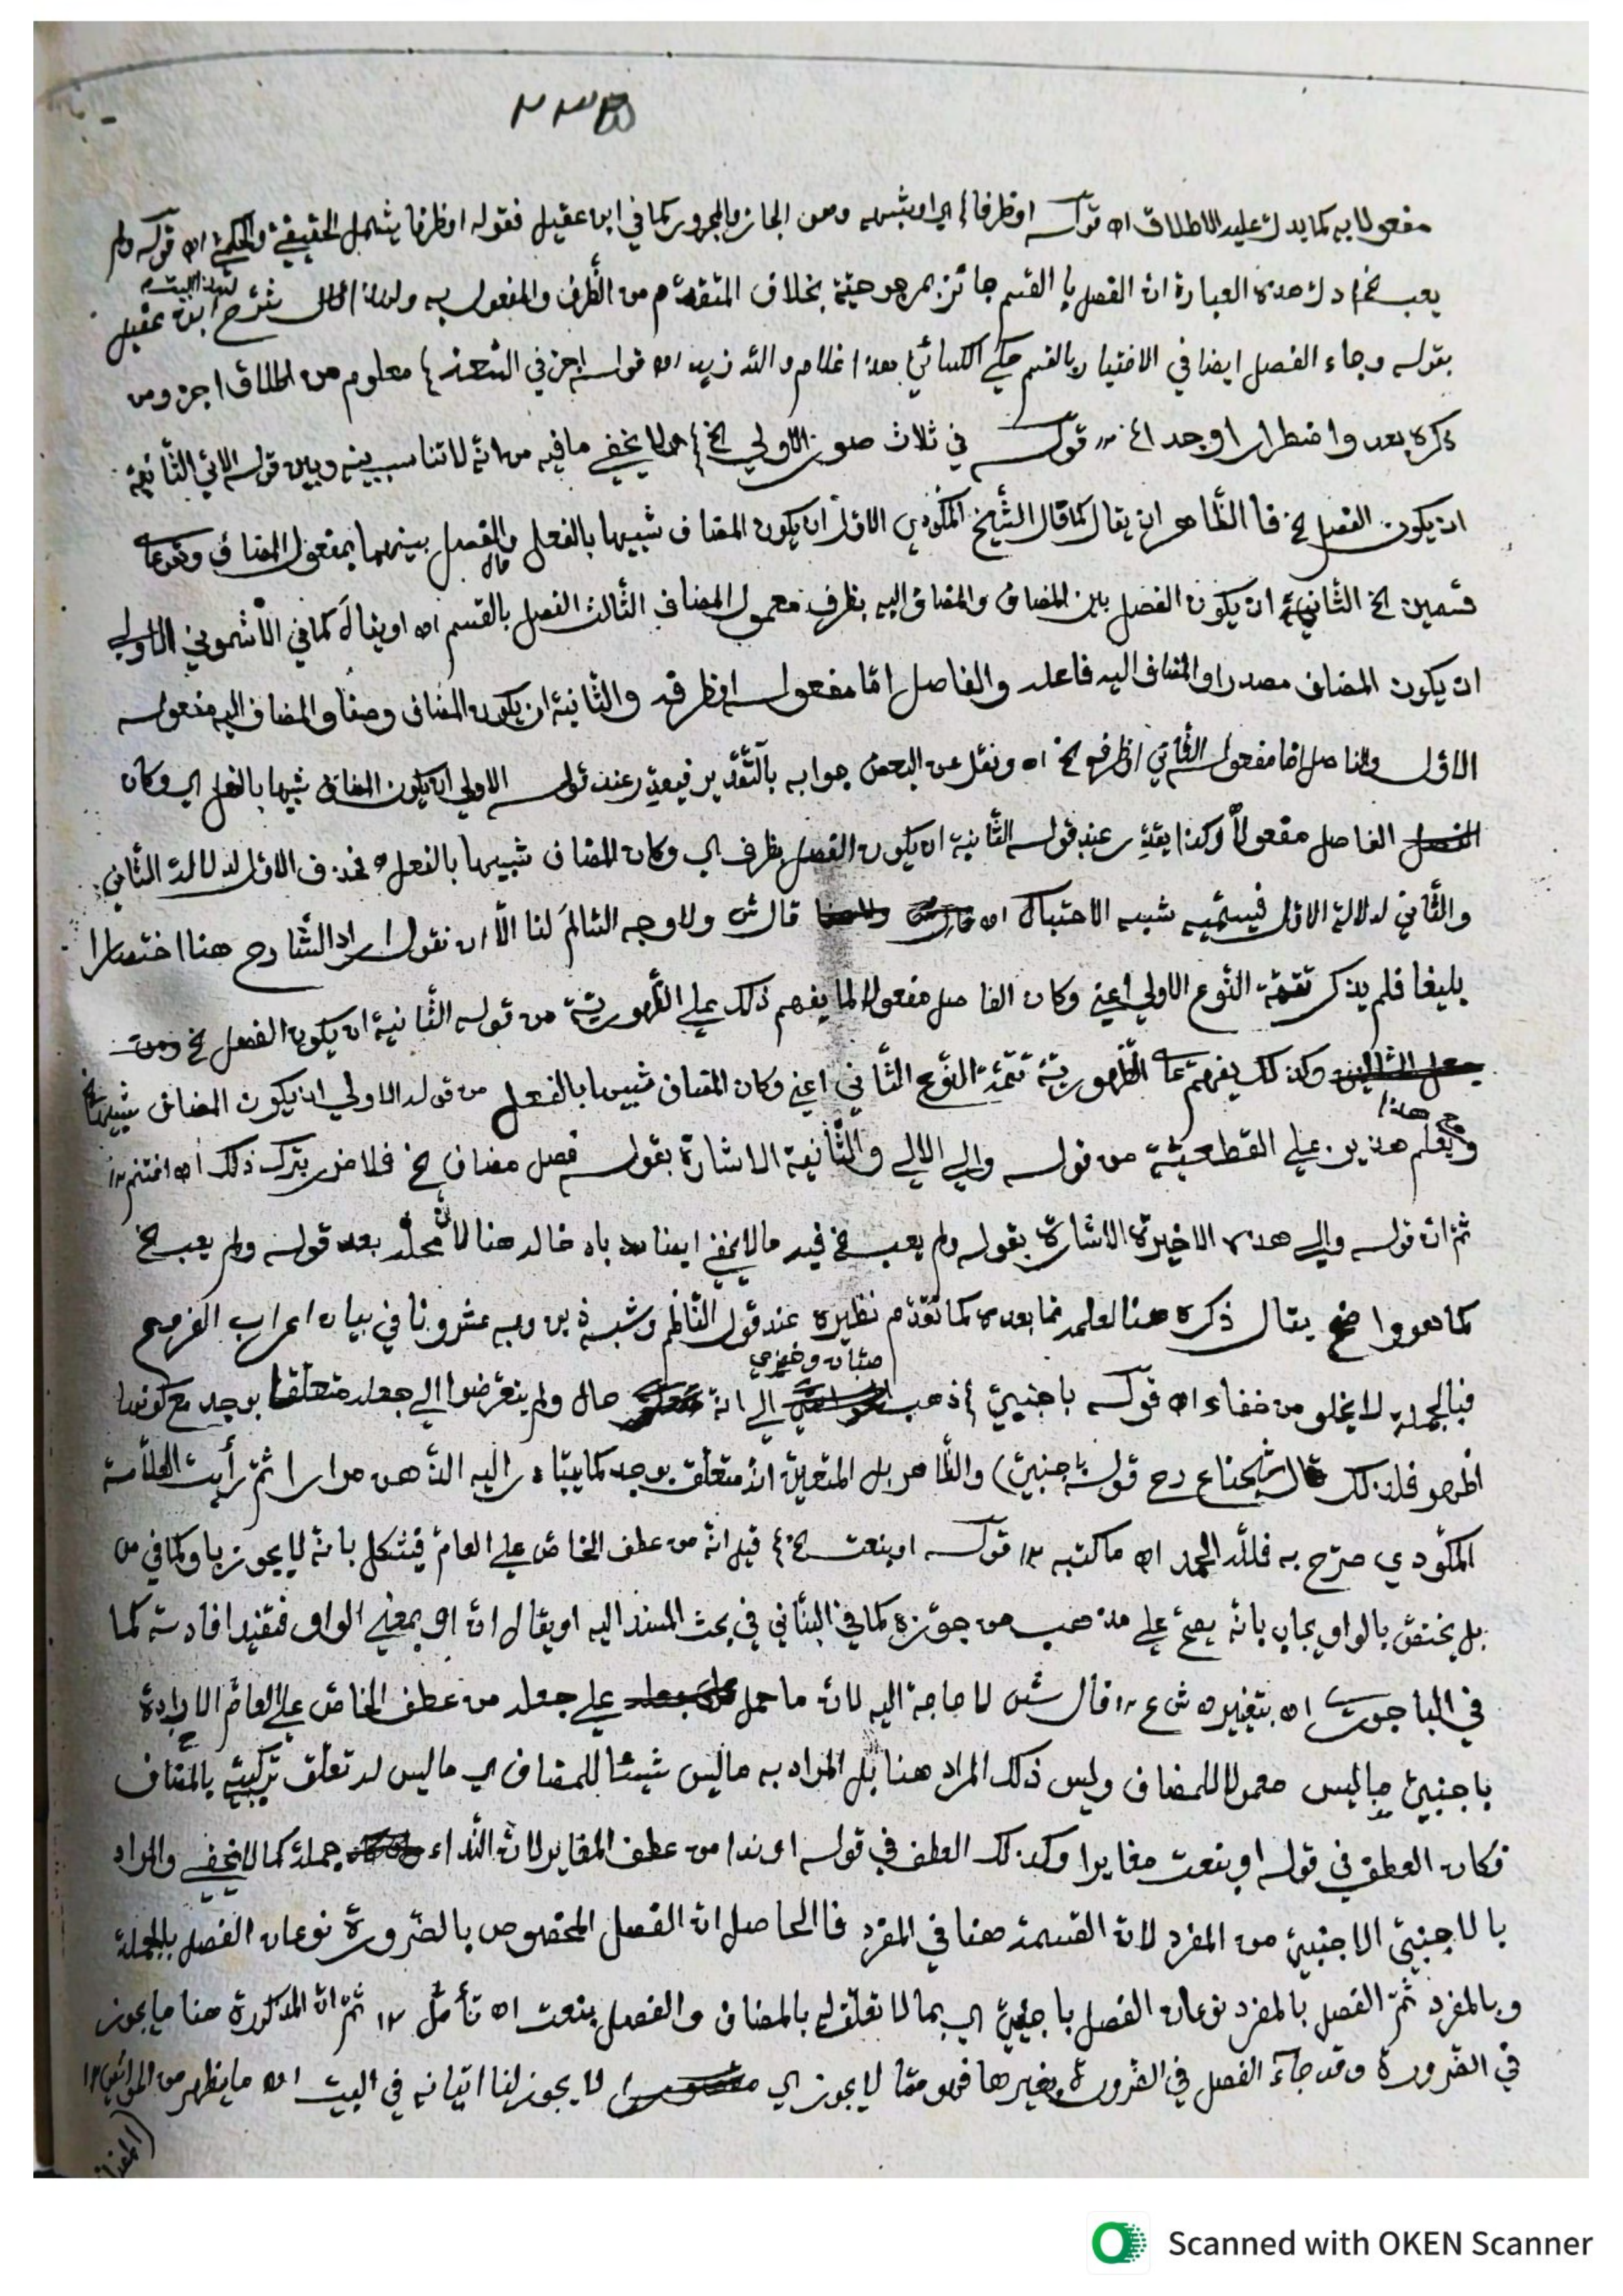 ٢٣٥
مفعولا به كما يدل عليه الاطلاق اه قوله اوظرفا ⟩ اي اوشبهه وهو الجار والمجرور كما في ابن عقيل فقوله اوظرفا يشمل الحقيقي والحكمي اه قوله ولم
يعب الخ ⟩ دلت هذه العبارة ان الفصل با القسم جائز بمرجوحية بخلاف المتقدم من الظرف والمفعول به ولهذا شرح ابن عقيل
لهذا البيت
بقوله وجاء الفصل ايضا في الاختيار بالقسم حكى الكسائي هذا غلام والله زيد اه قوله اجز في الشعر ⟩ معلوم من اطلاق اجز ومن
ذكره بعد واضطرارا وجدا ١٢ قوله في ثلاث صور الاولى الخ ⟩ لا يخفى ما فيه من انه لا تناسب بينه وبين قوله الآتي الثانية
ان يكون الفصل الخ فا الظاهر ان يقال كما قال الشيخ المكودي الاول ان يكون المضاف شبيها بالفعل والفصل بينهما بمفعول المضاف
قسمين الخ الثانية ان يكون الفصل بين المضاف والمضاف اليه بظرف معمول المضاف الثالث الفصل بالقسم اه او يقال كما في الاشموني الاولى
ان يكون المضاف مصدرا والمضاف اليه فاعله والفاصل امّا مفعوله اوظرفه والثانية ان يكون المضاف وصفا والمضاف اليه مفعوله
الاول والفاصل امّا مفعوله الثاني اوظرفه الخ اه ونقل عن البعض جوابه بالتقدير فيقدر عند قوله الاولى ان يكون المضاف شبيها بالفعل اي وكان
الفاصل مفعولا وكذا يقدر عند قوله الثانية ان يكون الفصل بظرف اي وكان المضاف شبيها بالفعل فحذف الاول لدلالة الثاني
والثاني لدلالة الاول فيسمّيه شبيه الاحتباك اه قال ش ولا وجه السالم لنا الّا ان نقول اراد الشارح هنا اختصارا
بليغا فلم يذكر تتمّة النّوع الاولى اعني وكان الفاصل مفعولا لما يفهم ذلك على الظّهوريّة من قوله الثّانية ان يكون الفصل الخ
وكذلك يفهم على الظّهوريّة تتمّة النّوع الثّاني اعني وكان المضاف شبيها بالفعل من قوله الاولى ان يكون المضاف شبيها الخ
مع هذا
ويعلم هذين على القطعيّة من قوله والى الاولى والثّانية الاشارة بقوله فصل مضاف الخ فلا ضرر بترك ذلك اه اغتنم ١٢
ثمّ انّ قوله والى هذه الاخيرة الاشارة بقوله ولم يعب الخ فيه ما لا يخفى ايضا باد خالد هنا لانّ محلّه بعد قوله ولم يعب الخ
كما هو واضح يقال ذكره هنا لعلمه ممّا بعده كما تقدّم نظيره عند قول النّاظم وشبه ذين وبه عشرونا في بيان اعراب الفرع
فبالجملة لا يخلو من خفاء اه قوله باجنبيّ ⟩ ذهب الى انّه حال ولم يتعرّضوا الى جعله متعلّقا بوجد مع كونه
صبّان وخضري
اظهر فلذلك قال شيخنا ع رح قوله باجنبيّ) والظّاهر بل المتعيّن انّه متعلّق بوجد كما يتبادر اليه الذّهن مرارا ثمّ رأيت العلّامة
المكّودي صرّح به فللّه الحمد اه ما كتبه ١٢ قوله اوبنعت الخ ⟩ قيل انّه من عطف الخاصّ على العامّ فيشكل بانّه لا يجوز باو كما في
بل يختصّ بالواو يجاب بانّه يصحّ على مذهب من جوّزه كما في البنّاني في بحث المسند اليه او يقال انّ او بمعنى الواو فتفيد افادته كما
في الباجوري اه بتغييره ش ع ١٢ قال ش لا حاجة اليه لانّ ما حمل على جعله من عطف الخاصّ على العامّ الارادة
باجنبيّ ما ليس معمولا للمضاف وليس ذلك المراد هنا بل المراد به ما ليس شيئا للمضاف اي ما ليس له تعلّق بالمضاف
فكان العطف في قوله اوبنعت مغايرا وكذلك العطف في قوله اوندا من عطف المغاير لانّ النّداء جملة كما لا يخفى والمراد
بالاجنبيّ الاجنبيّ من المفرد لانّ القسمة هنا في المفرد فا الحاصل انّ الفصل المخصوص بالضّرورة نوعان الفصل بالجملة
وبالمفرد ثمّ الفصل بالمفرد نوعان الفصل باجنبيّ اي بما لا تعلّق له بالمضاف والفصل بنعت اه تأمّل ١٢ ثمّ انّ المذكورة هنا ما يجوز
في الضّرورة وقد جاء الفصل في الضّرورة بغيرها فهو ممّا لا يجوز اي لا يجوز لنا اتيانه في البيت اه ما يظهر من
Scanned with OKEN Scanner